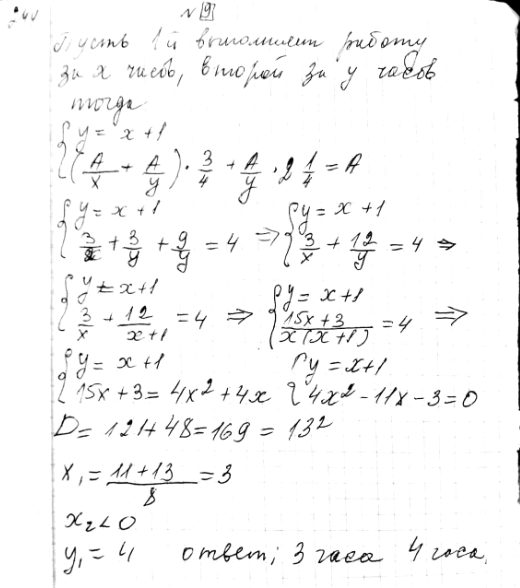 № 9
Пусть 1й выполняет работу
за x часов, второй за y часов
тогда
{ y = x + 1
{ (A/x + A/y) · 3/4 + A/y · 2 1/4 = A
{ y = x + 1 { y = x + 1
{ 3/x + 3/y + 9/y = 4 ⇒ { 3/x + 12/y = 4 ⇒
{ y = x + 1 { y = x + 1
{ 3/x + 12/(x+1) = 4 ⇒ { (15x + 3)/(x(x+1)) = 4 ⇒
{ y = x + 1 { y = x + 1
{ 15x + 3 = 4x² + 4x { 4x² - 11x - 3 = 0
D = 121 + 48 = 169 = 13²
x₁ = (11 + 13)/8 = 3
x₂ < 0
y₁ = 4 ответ; 3 часа 4 часа.